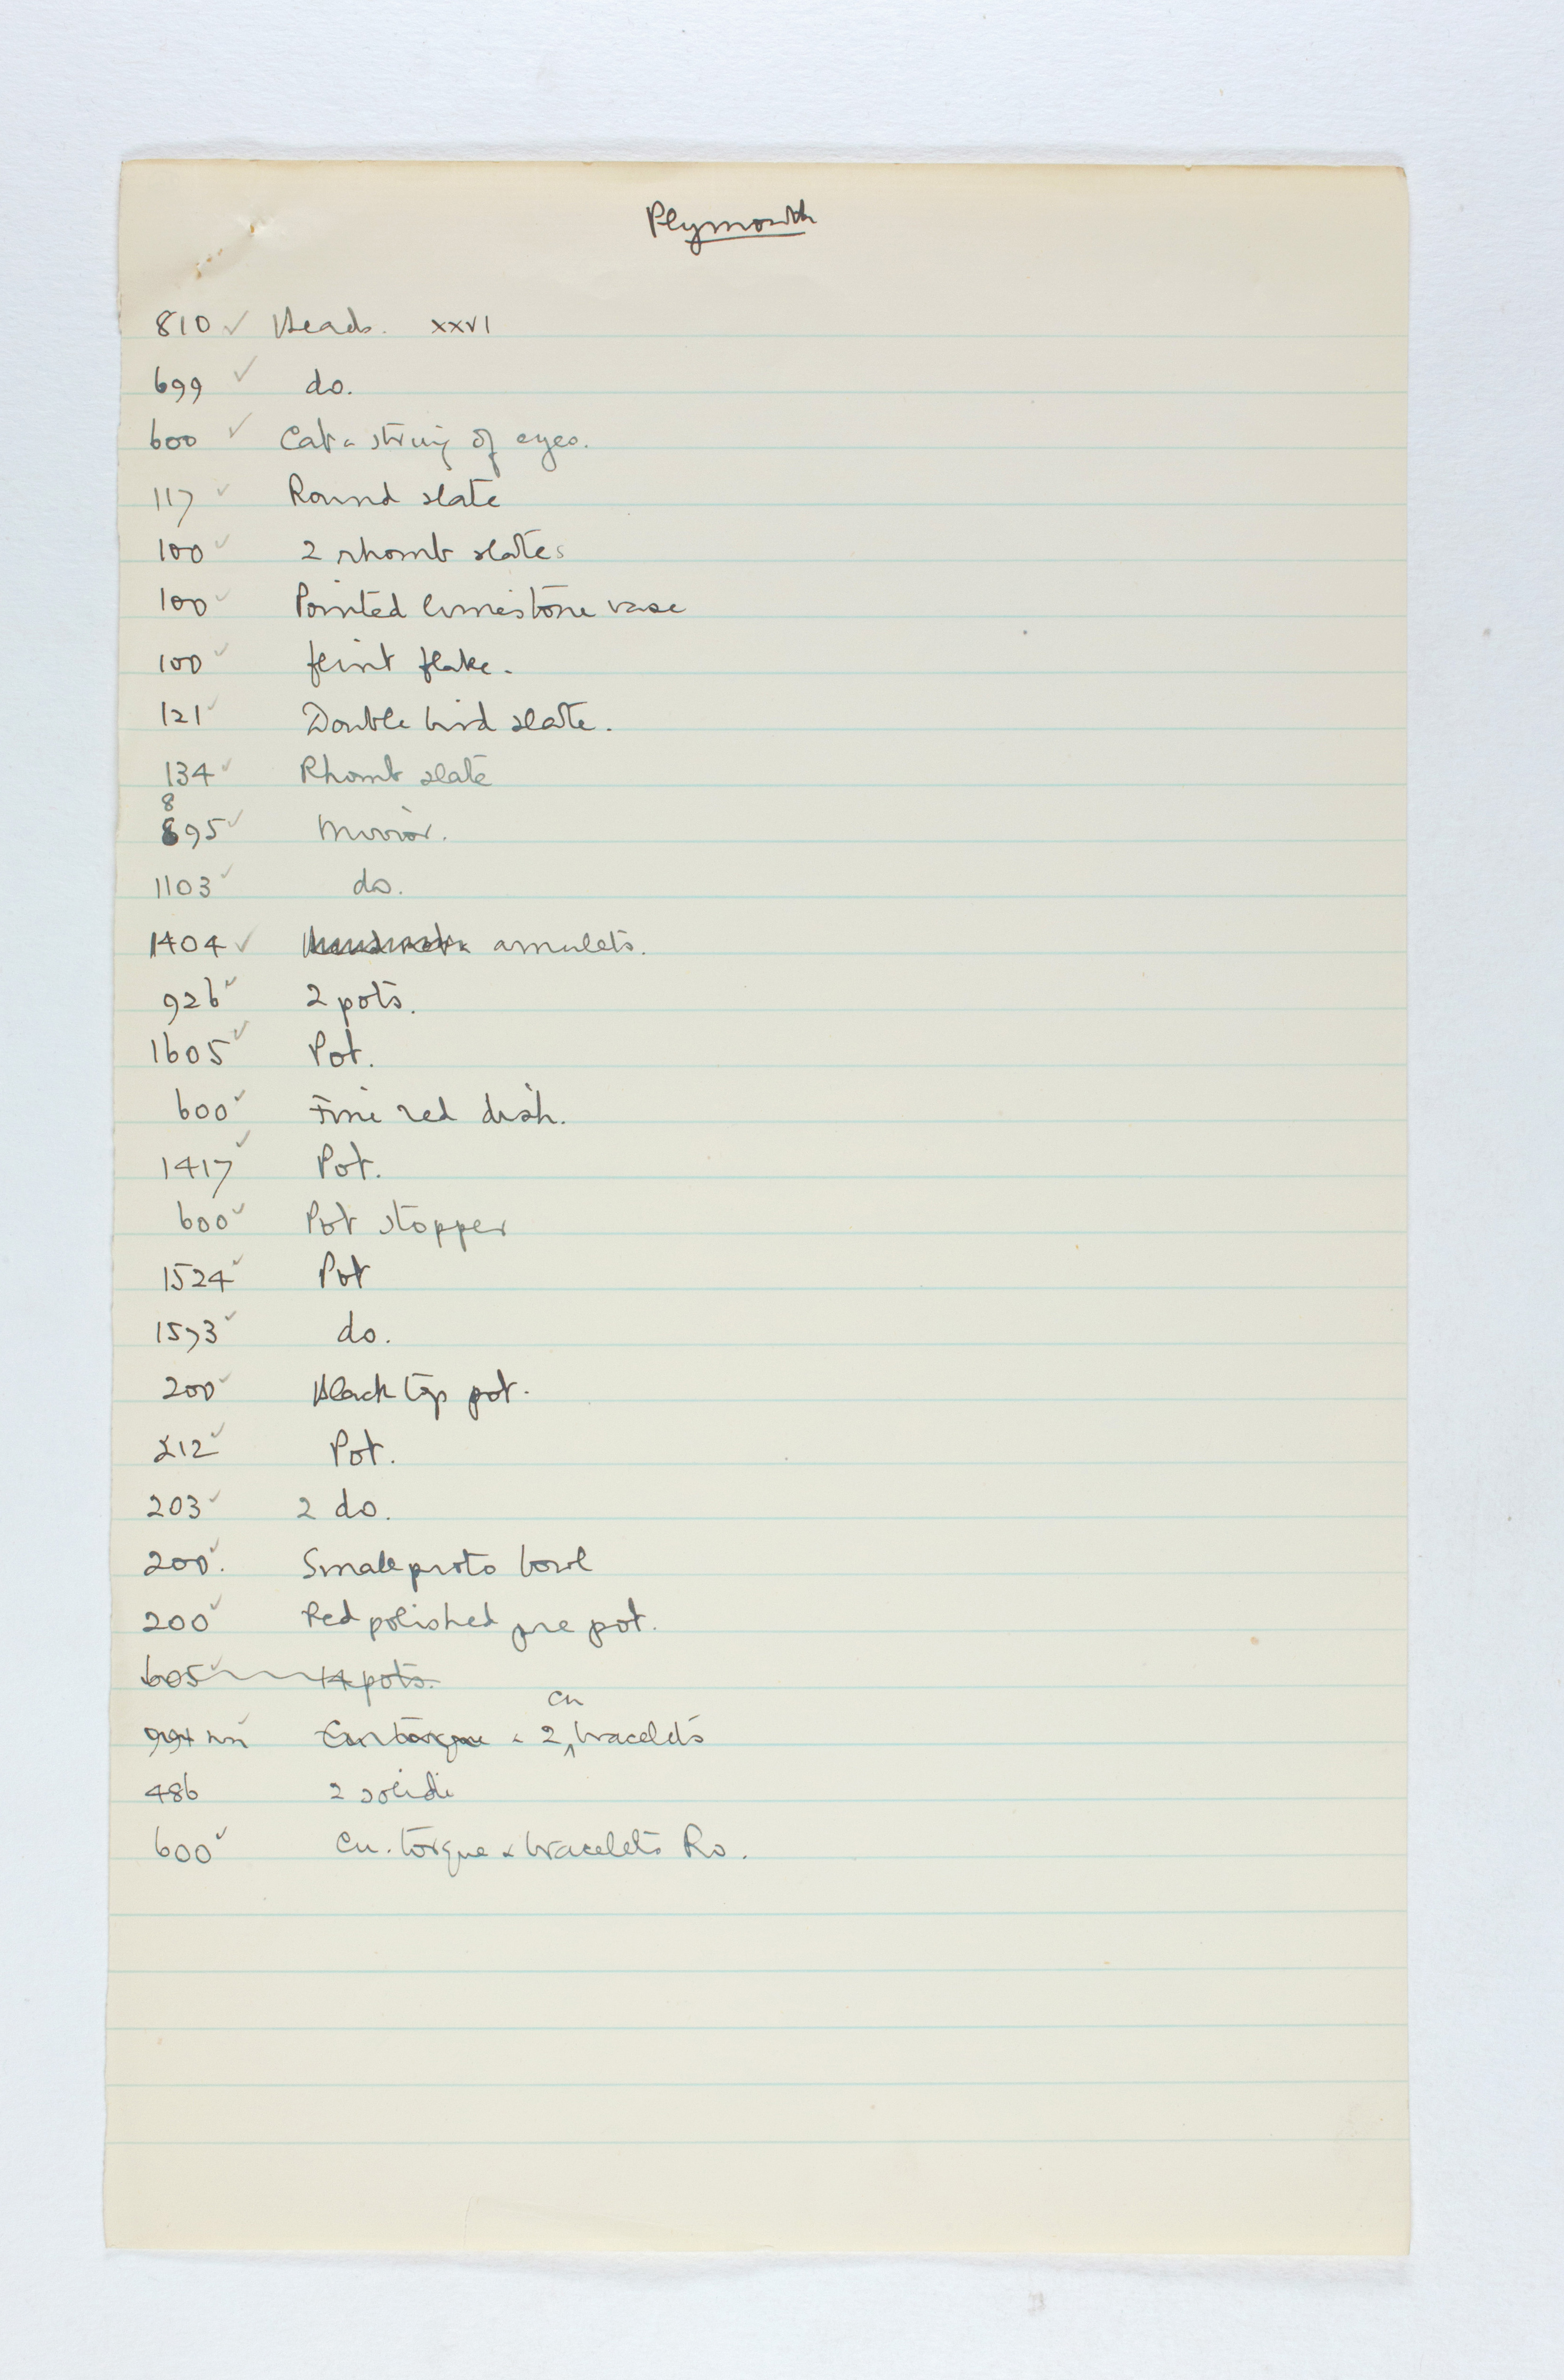 Plymouth
810 ✓ Beads. XXVI
699 ✓ do.
600 ✓ Cat & string of eyes.
117 ✓ Round slate
100 ✓ 2 rhomb slates
100 ✓ Pointed limestone vase
100 ✓ flint flake.
121 ✓ Double bird slate.
134 ✓ Rhomb slate
8
895 ✓ Mirror.
1103 ✓ do.
1404 ✓ amulets.
926 ✓ 2 pots.
1605 ✓ Pot.
600 ✓ Fine red dish.
1417 ✓ Pot.
600 ✓ Pot stopper
1524 ✓ Pot
1573 ✓ do.
200 ✓ Black top pot.
212 ✓ Pot.
203 ✓ 2 do.
200. ✓ Small proto bowl
200 ✓ Red polished pre pot.
605 ✓ 14 pots.
994 ✓ Cu torque & 2 Cu bracelets
486 2 solidi
600 ✓ Cu. torque & bracelets Ro.